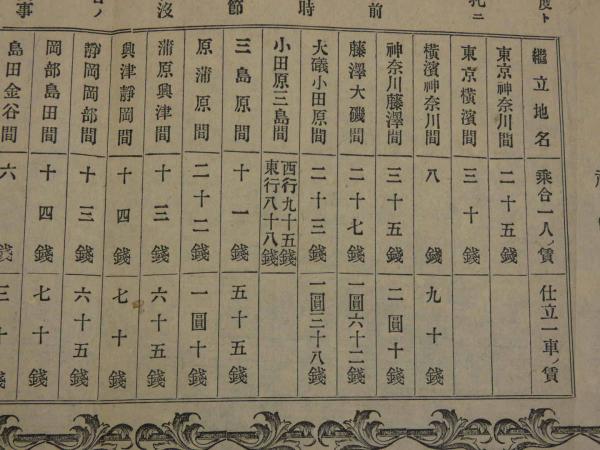 度ト
札ニ
前
時
節
沒
日ノ
事
繼立地名 乘合一人ノ賃 仕立一車ノ賃
東京神奈川間 二十五錢
東京橫濱間 三十錢
橫濱神奈川間 八錢 九十錢
神奈川藤澤間 三十五錢 二圓十錢
藤澤大磯間 二十七錢 一圓六十二錢
大磯小田原間 二十三錢 一圓三十八錢
小田原三島間 西行九十五錢 東行八十八錢
三島原間 十一錢 五十五錢
原蒲原間 二十二錢 一圓十錢
蒲原興津間 十三錢 六十五錢
興津靜岡間 十四錢 七十錢
靜岡岡部間 十三錢 六十五錢
岡部島田間 十四錢 七十錢
島田金谷間 六錢 三十錢